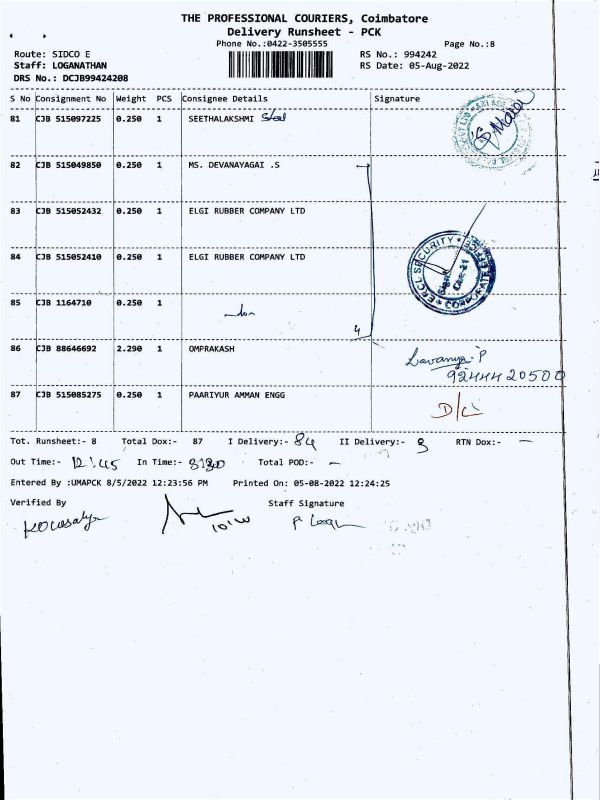 THE PROFESSIONAL COURIERS, Coimbatore
Delivery Runsheet - PCK
Phone No.:0422-3505555 Page No.:8
Route: SIDCO E RS No.: 994242
Staff: LOGANATHAN RS Date: 05-Aug-2022
DRS No.: DCJB99424208
S No Consignment No Weight PCS Consignee Details Signature
81 CJB 515097225 0.250 1 SEETHALAKSHMI Steel
82 CJB 515049850 0.250 1 MS. DEVANAYAGAI .S
83 CJB 515052432 0.250 1 ELGI RUBBER COMPANY LTD
84 CJB 515052410 0.250 1 ELGI RUBBER COMPANY LTD
SECURITY
85 CJB 1164710 0.250 1
4
86 CJB 88646692 2.290 1 OMPRAKASH Lavanya P
9244420500
87 CJB 515085275 0.250 1 PAARIYUR AMMAN ENGG D/C
Tot. Runsheet:- 8 Total Dox:- 87 I Delivery:- 84 II Delivery:- RTN Dox:- —
Out Time:- 12:45 In Time:- Total POD:- —
Entered By :UMAPCK 8/5/2022 12:23:56 PM Printed On: 05-08-2022 12:24:25
Verified By Staff Signature